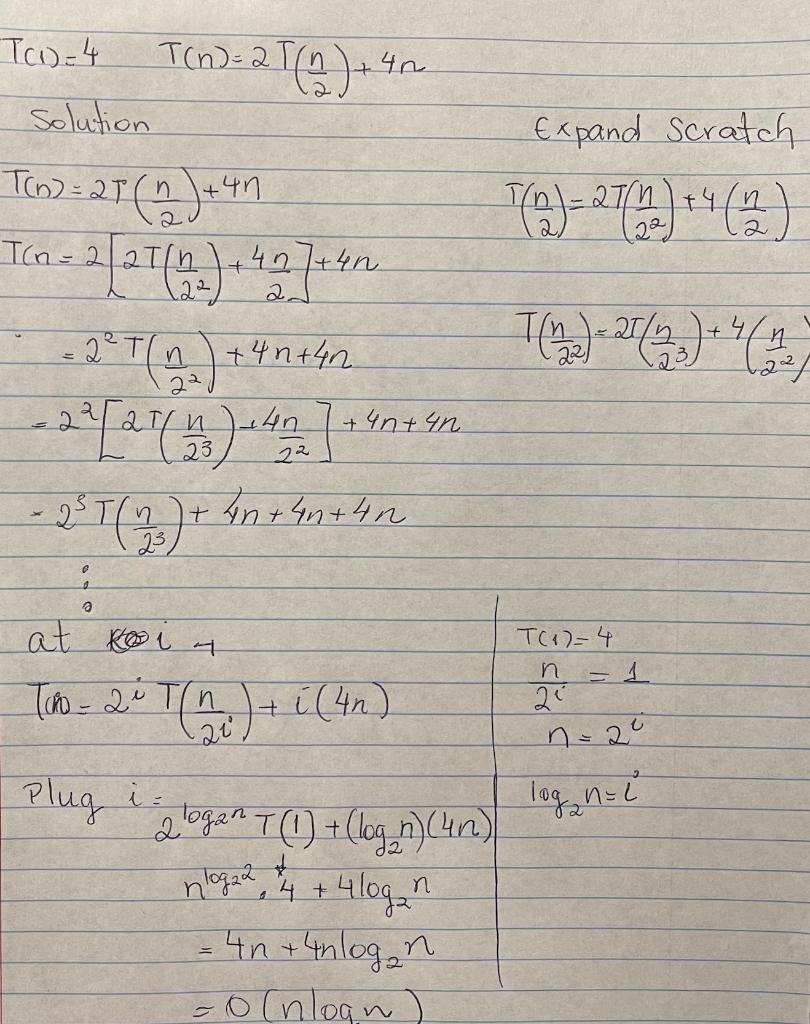 T(1)=4 T(n)=2T(n/2)+4n
Solution
Expand Scratch
T(n)=2T(n/2)+4n
T(n/2)=2T(n/2²)+4(n/2)
T(n = 2[2T(n/2²)+4n/2]+4n
= 2²T(n/2²)+4n+4n
T(n/2²)=2T(n/2³)+4(n/2²)
= 2²[2T(n/2³)+4n/2²]+4n+4n
= 2³T(n/2³)+4n+4n+4n
⋮
at i →
T(n)=2ⁱT(n/2ⁱ)+i(4n)
T(1)=4
n/2ⁱ = 1
n=2ⁱ
log₂n=i
Plug i =
2^(log₂n) T(1)+(log₂n)(4n)
n^(log₂2) · 4 + 4log₂n
= 4n+4nlog₂n
= O(nlogn)